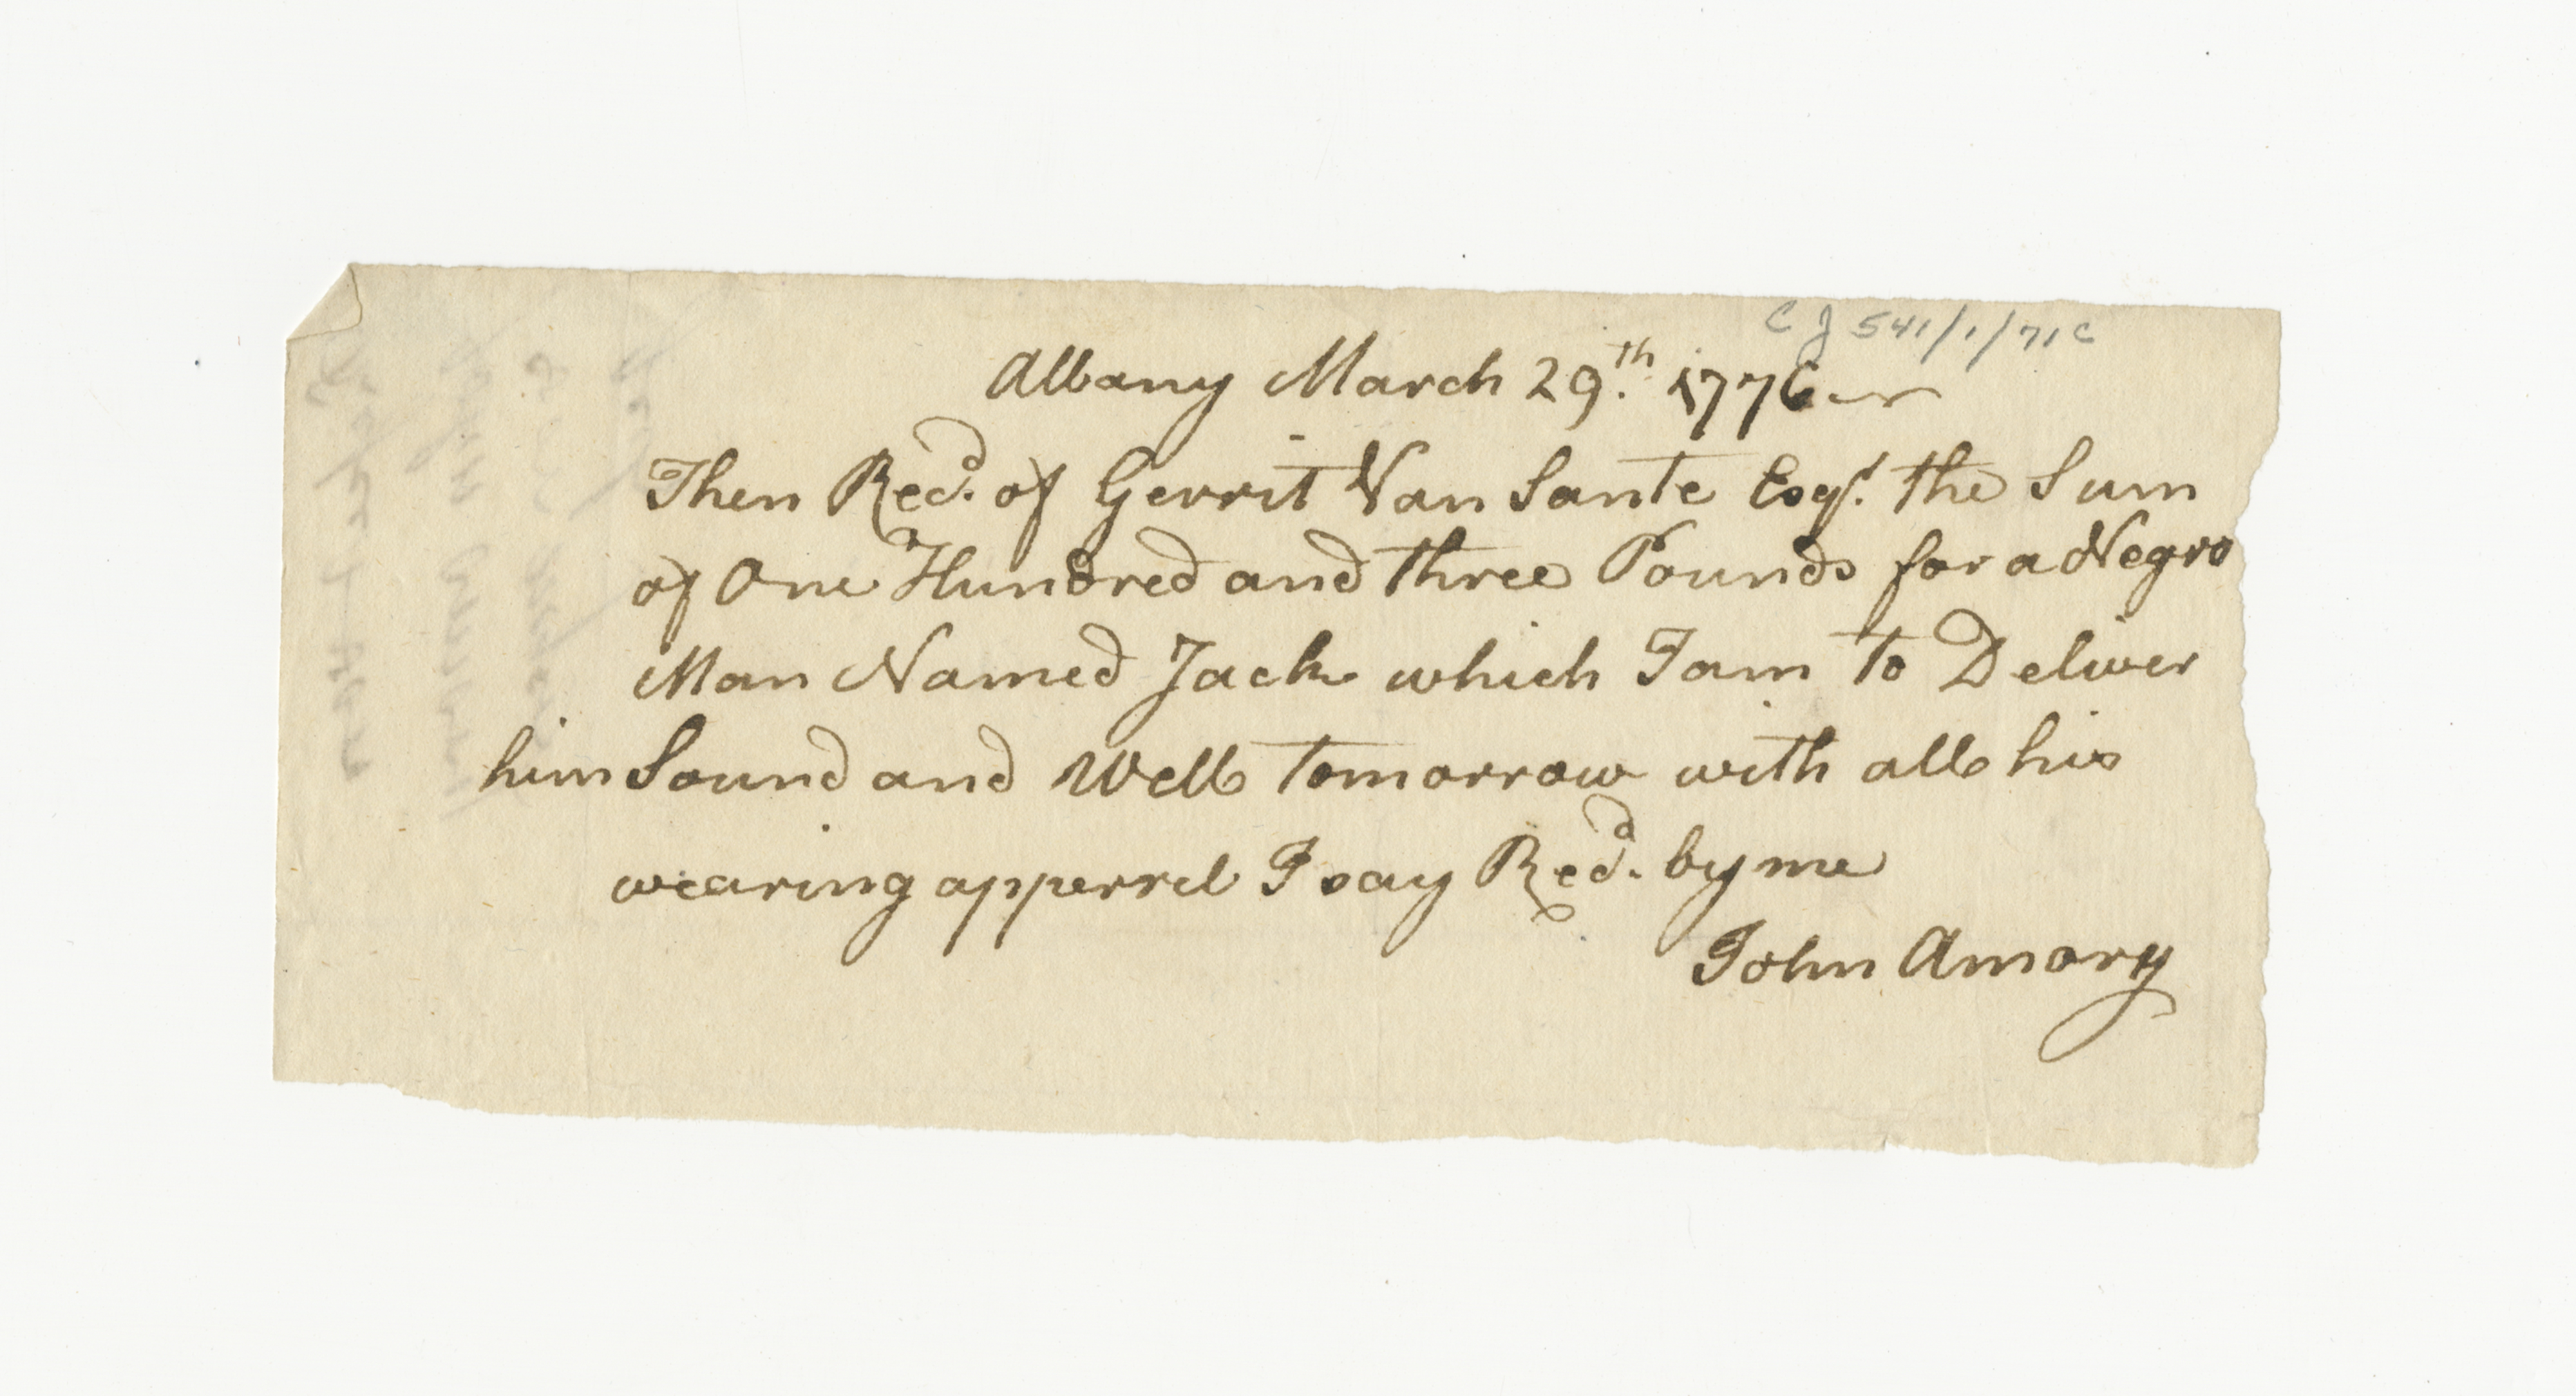 CJ 541/1/71c
Albany March 29th. 1776
Then Recd. of Gerrit Van Sante Esqr. the Sum
of One Hundred and three Pounds for a Negro
Man Named Jack which I am to Deliver
him Sound and Well tomorrow with all his
wearing apperrel I say Recd. by me
John Amory